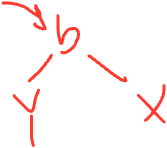 b
Y X